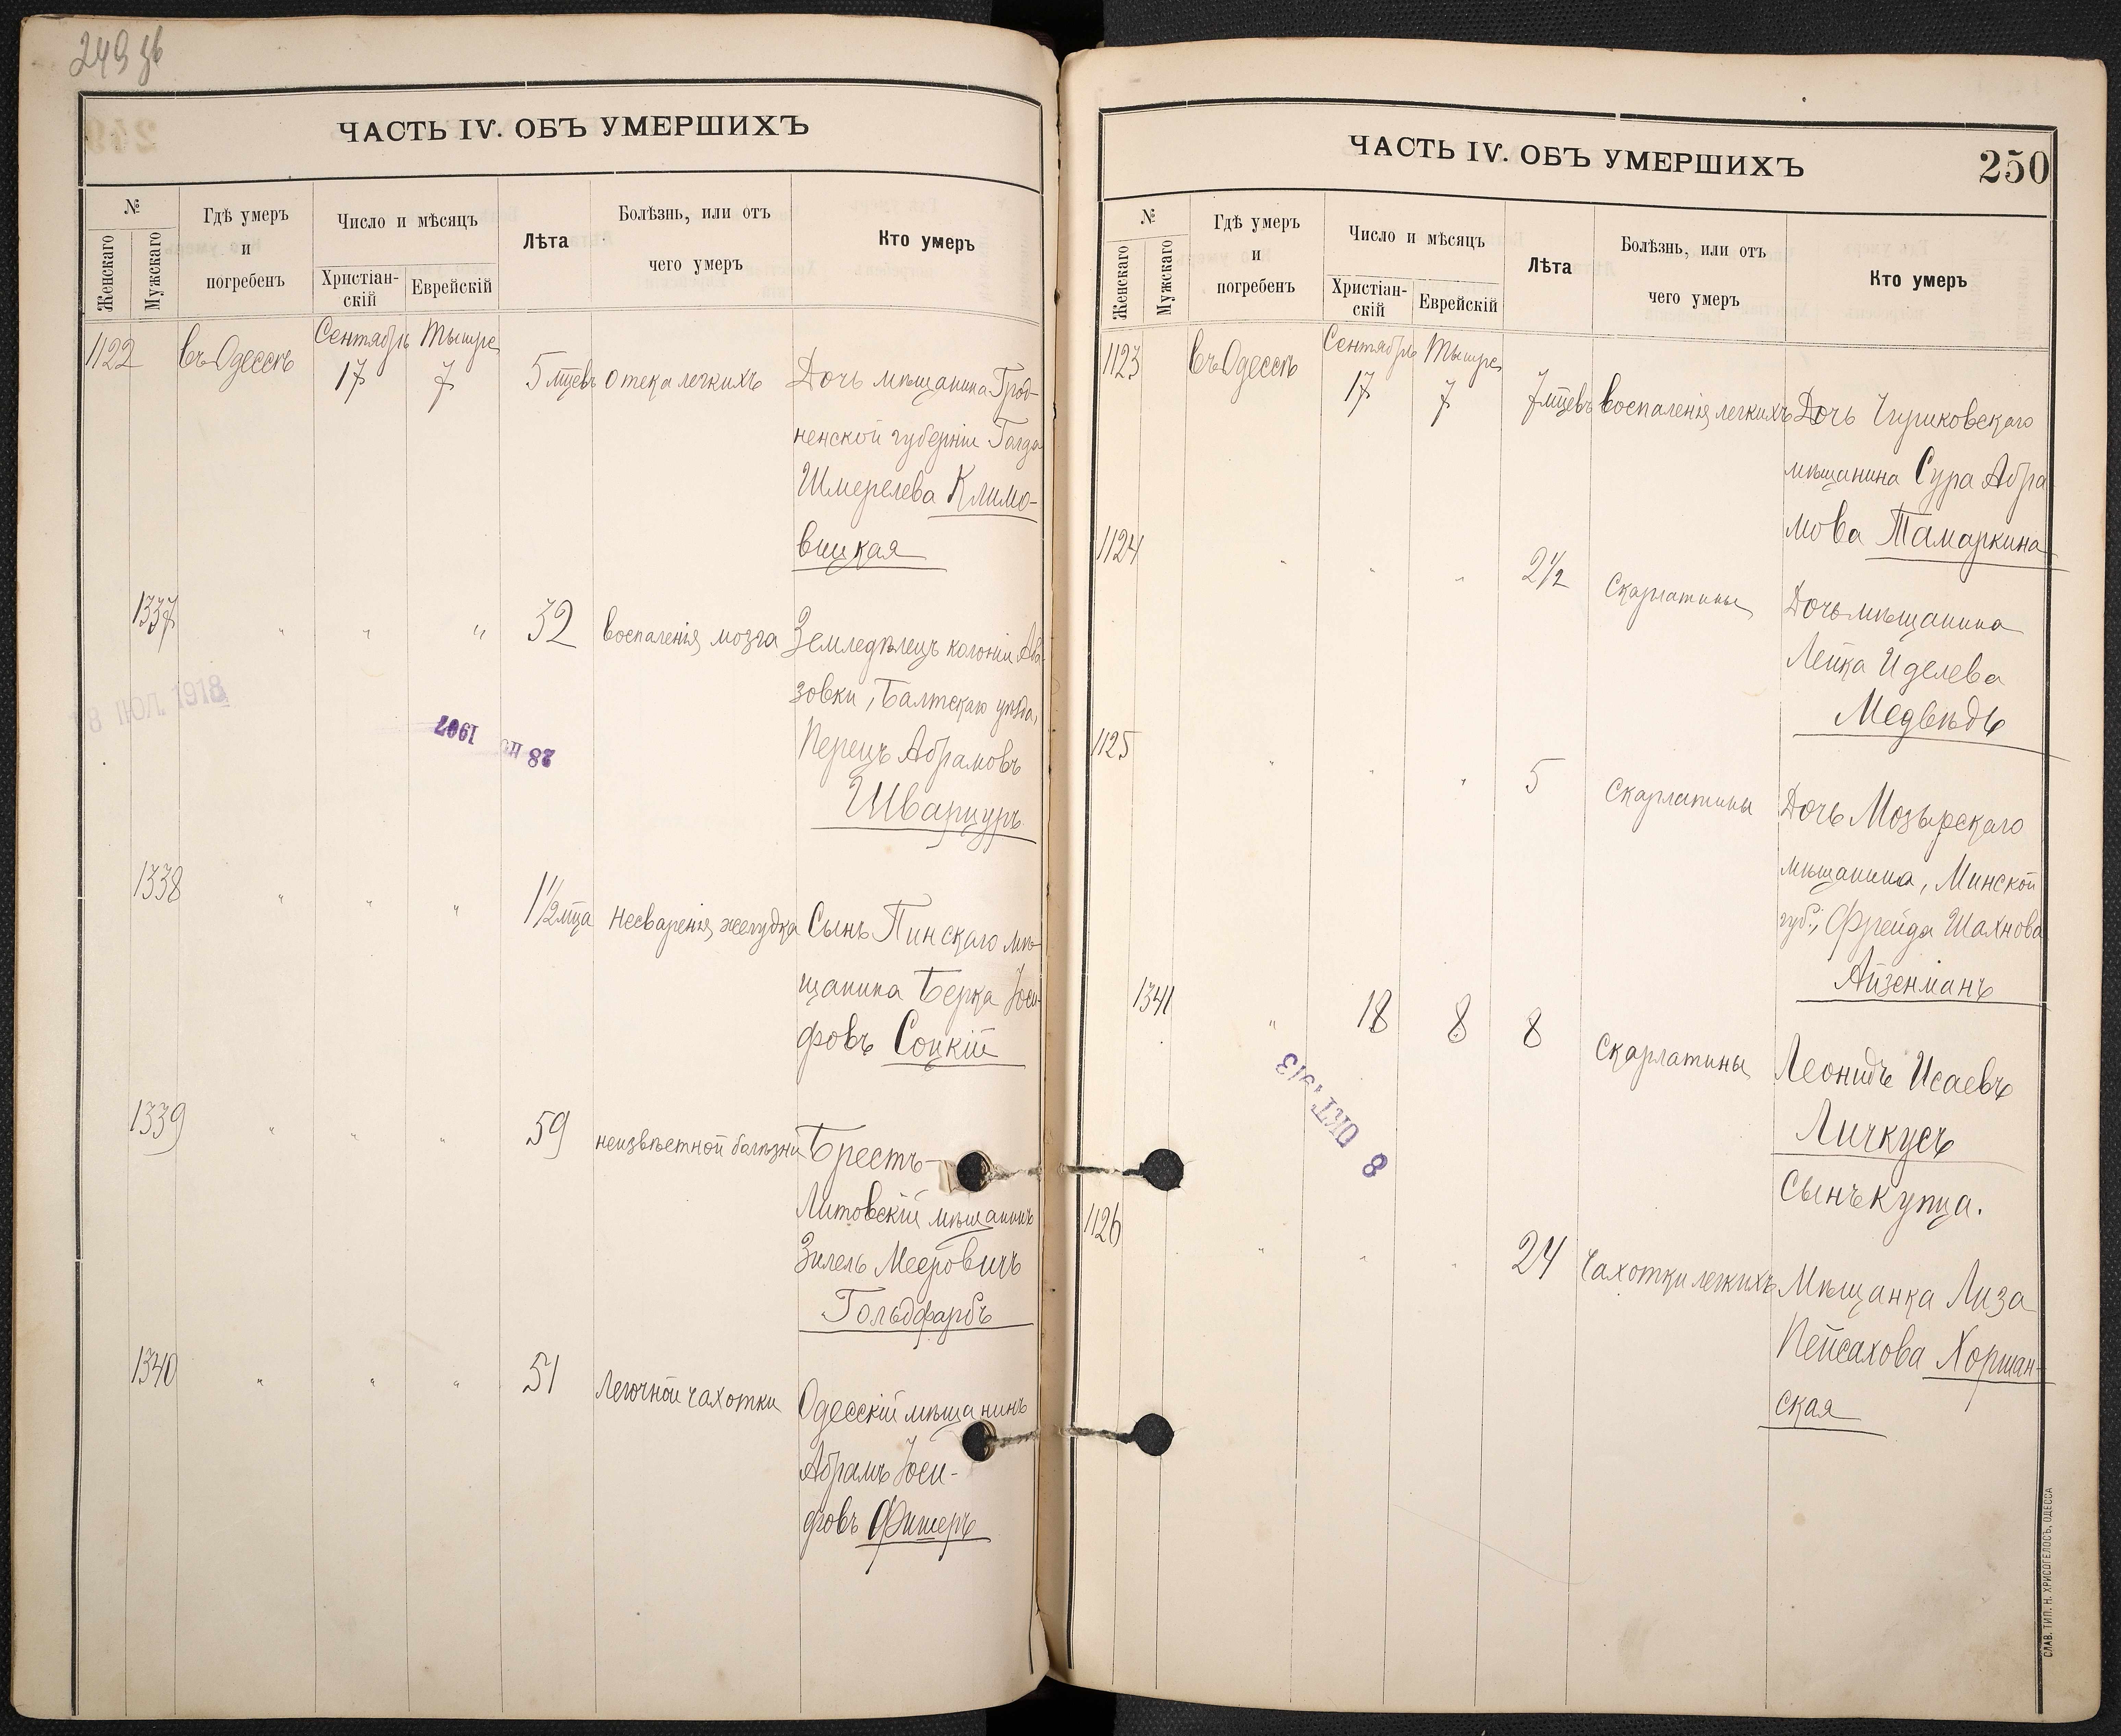 249 зв
ЧАСТЬ IV. ОБЪ УМЕРШИХЪ
№
Женскаго
Мужскаго
Гдѣ умеръ
и
погребенъ
Число и мѣсяцъ
Христіан-
скій
Еврейскій
Лѣта
Болѣзнь, или отъ
чего умеръ
Кто умеръ
1122 въ Одессѣ Сентябрь 17 Тышре 7 5 мцевъ отека легкихъ Дочь мѣщанина Грод-
ненской губерніи Голда
Шмерелева Климо-
вицкая
1337 " " " 32 воспаленія мозга Земледѣлецъ колоніи
зовки, Балтскаго уѣзда,
Перецъ Абрамовъ
Шварцуръ
18 ІЮЛ. 1918
28 1907
1338 " " " 1½ мца несваренія желудка Сынъ Пинскаго мѣ-
щанина Берка Іоси-
фовъ Соцкій
1339 " " " 59 неизвѣстной болѣзни Брестъ-
Литовскій мѣщанинъ
Зилель Мееровичъ
Гольдфарбъ
1340 " " " 51 легочной чахотки Одесскій мѣщанинъ
Абрамъ Іоси-
фовъ Фишеръ
ЧАСТЬ IV. ОБЪ УМЕРШИХЪ
250
№
Женскаго
Мужскаго
Гдѣ умеръ
и
погребенъ
Число и мѣсяцъ
Христіан-
скій
Еврейскій
Лѣта
Болѣзнь, или отъ
чего умеръ
Кто умеръ
1123 въ Одессѣ Сентябрь 17 Тышре 7 7 мцевъ воспаленія легкихъ Дочь
мѣщанина Сура Абра
мова Тамаркина
1124 " " " 2½ Скарлатины Дочь мѣщанина
Лейка Иделева
Медвѣдь
1125 " " " 5 Скарлатины Дочь Мозырскаго
мѣщанина, Минской
губ., Фрейда Шахнова
Айзенманъ
1341 " 18 8 8 Скарлатины Леонидъ Исаевъ
Личкусъ
сынъ купца.
8 ОКТ. 1913
1126 " " " 24 Чахотки легкихъ Мѣщанка Лиза
Пейсахова Хоршан-
ская
СЛАВ. ТИП. Н. ХРИСОГЕЛОСЪ, ОДЕССА